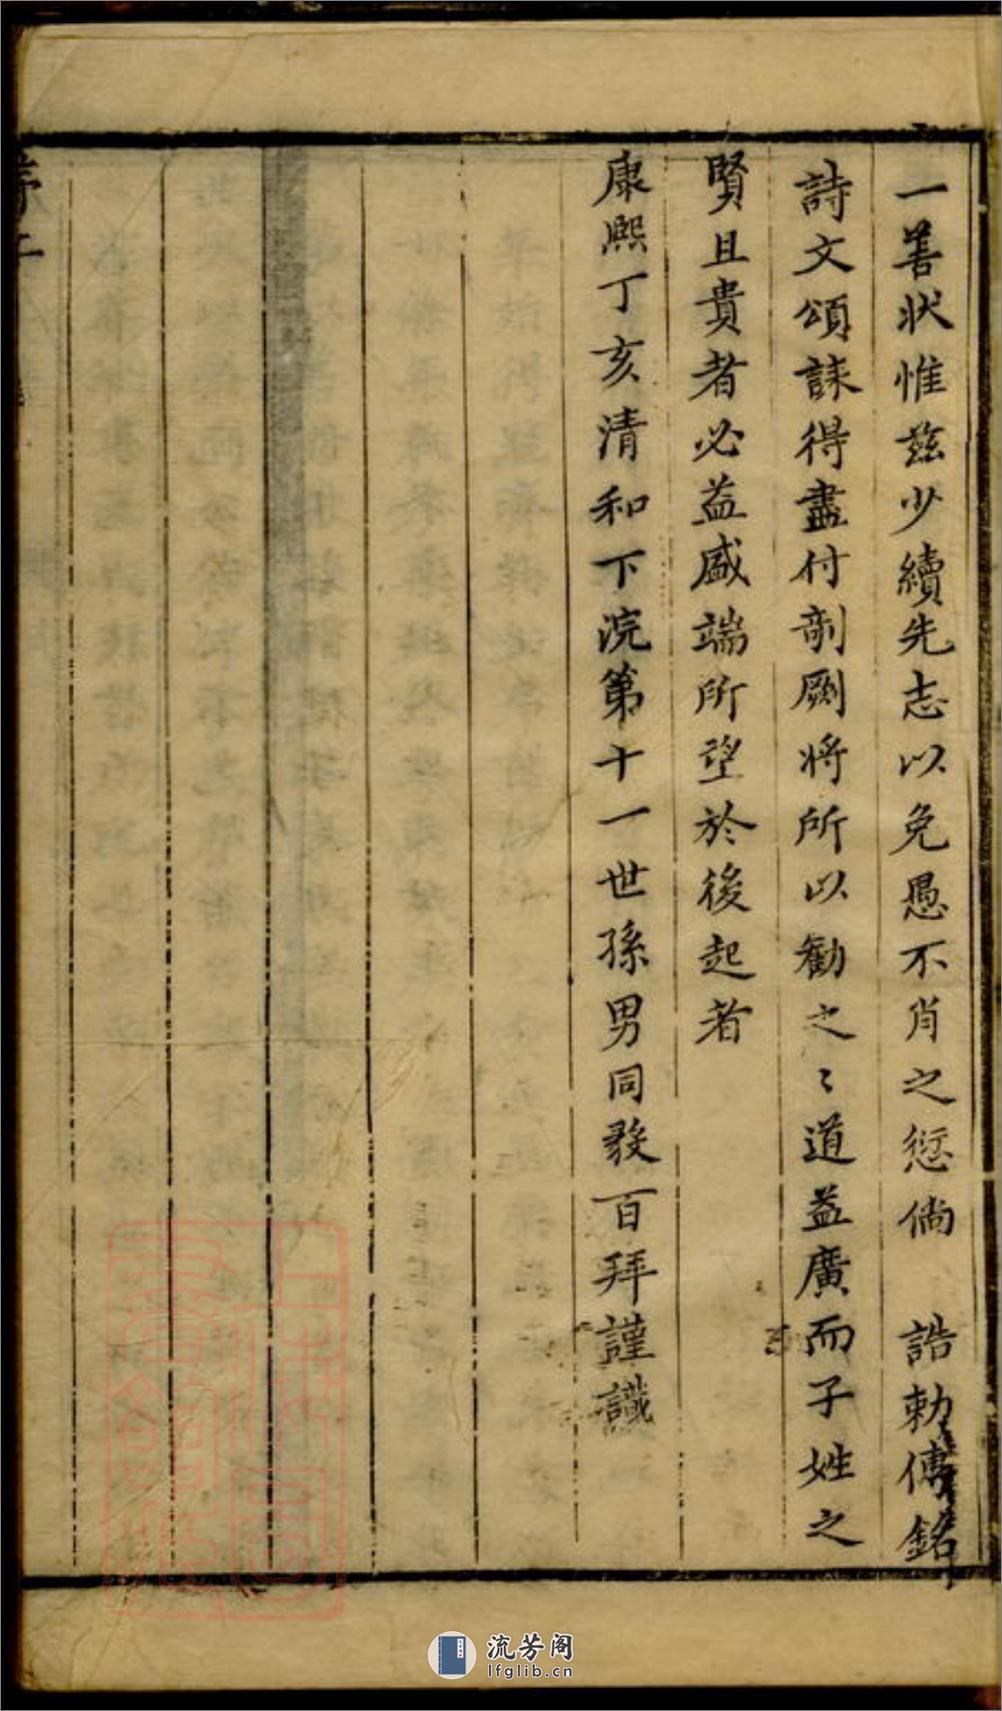 一善状惟兹少續先志以免愚不肖之愆倘　誥勅傳銘
詩文頌誄得盡付剞劂將所以勸之〻道益廣而子姓之
賢且貴者必益盛端所望於後起者
康熙丁亥清和下浣第十一世孫男同發百拜謹識
流芳阁
lfglib.cn